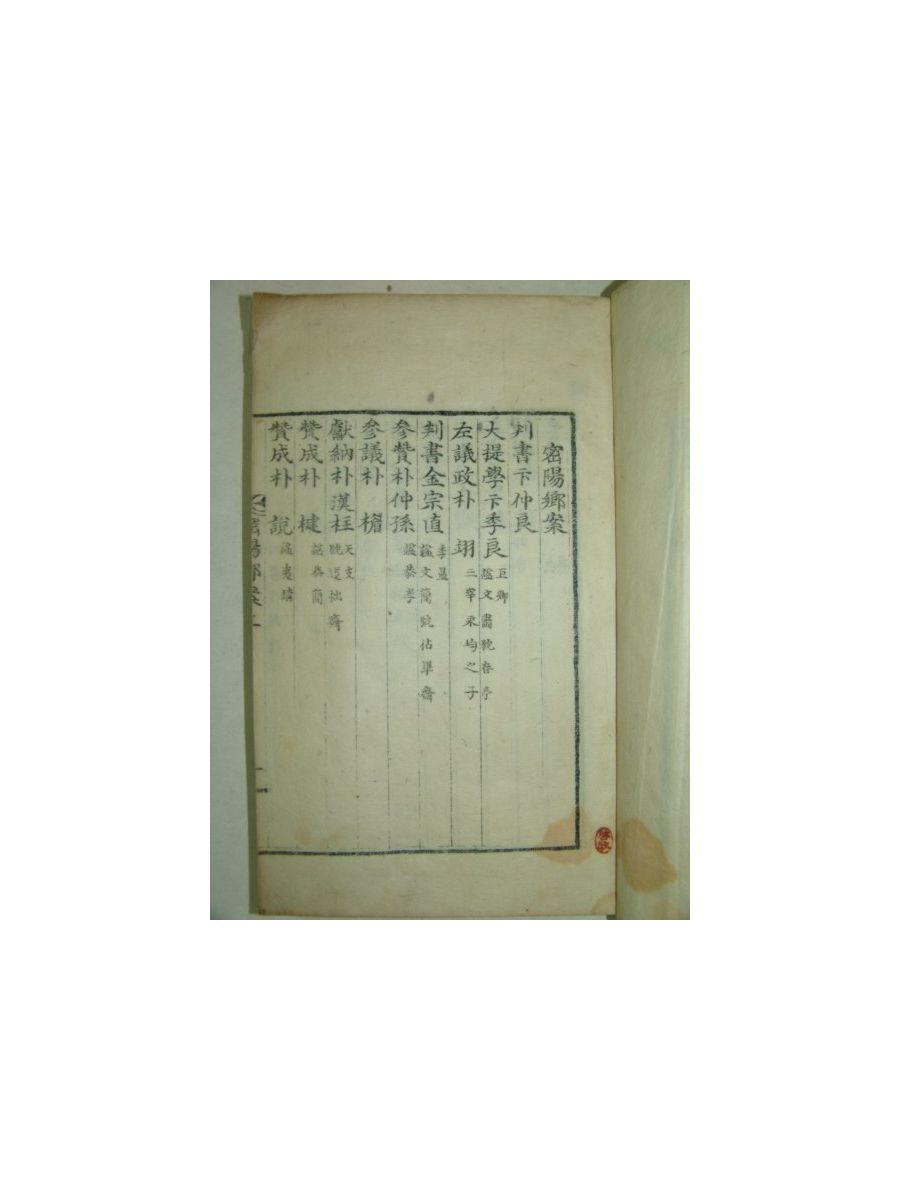 密陽鄉案
判書卞仲良
大提學卞季良 巨卿 謚文肅號春亭
左議政朴 翊 三宰永均之子
判書金宗直 季昷 謚文簡號佔畢齋
參贊朴仲孫 謚恭孝
參議朴 楿
獻納朴漢柱 天支 號迂拙齋
贊成朴 楗 謚恭簡
贊成朴 說 謚夷靖
密陽鄉案